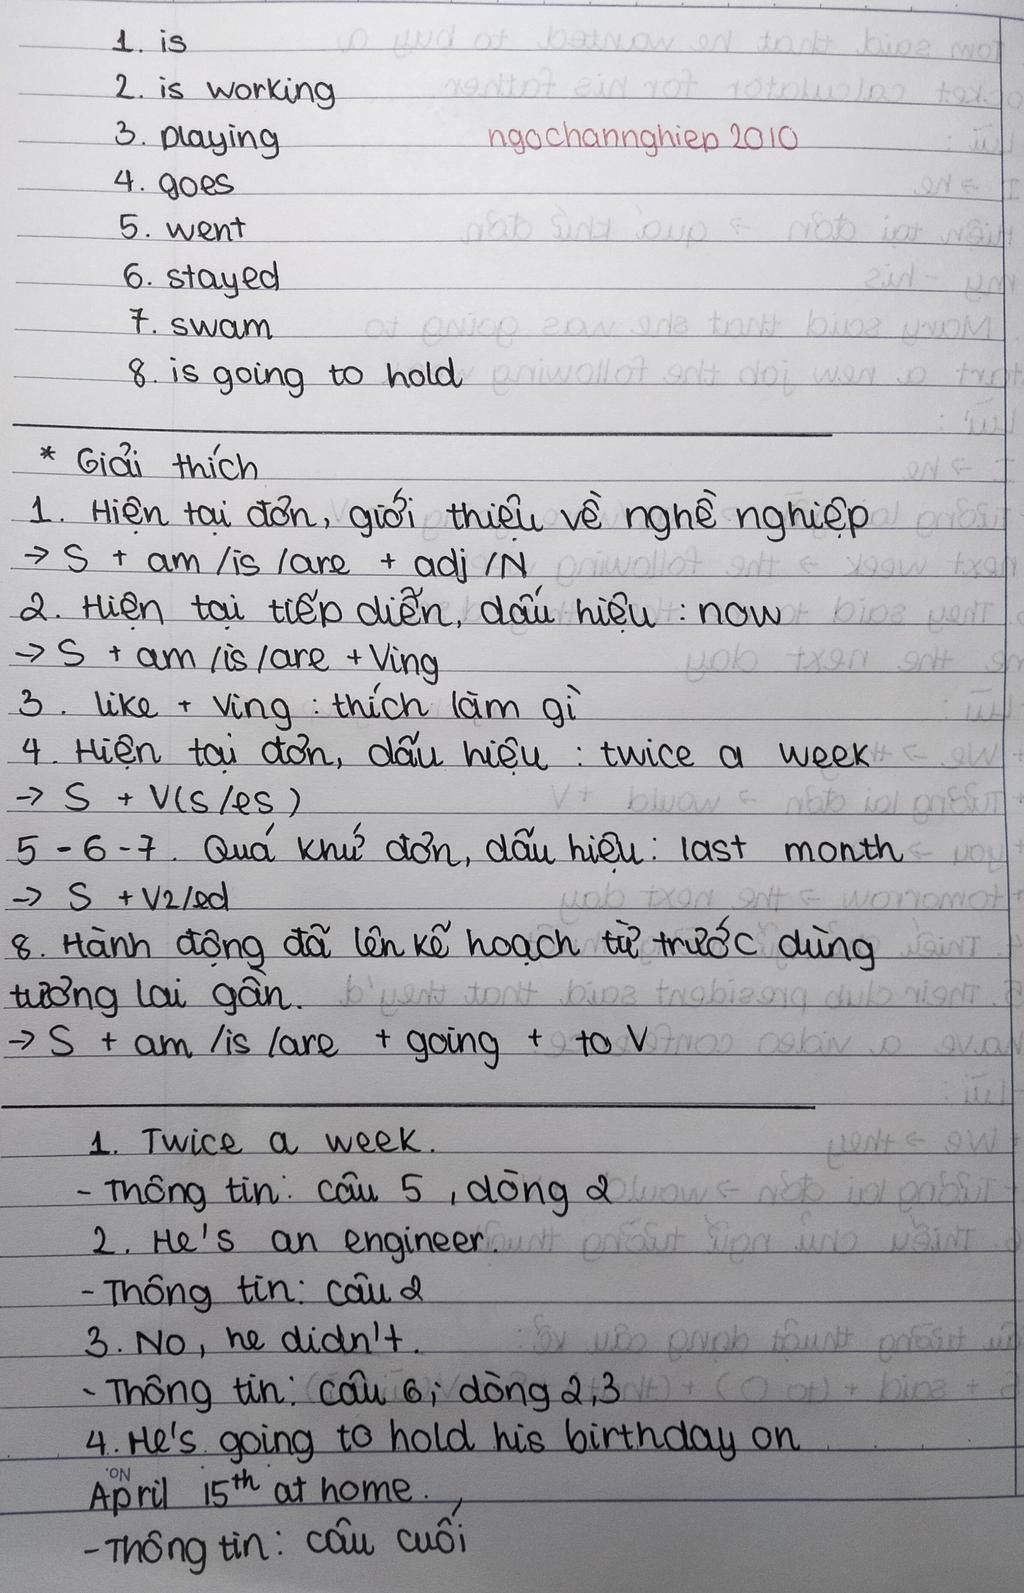 1. is
2. is working
3. playing
ngochannghiep2010
4. goes
5. went
6. stayed
7. swam
8. is going to hold
* Giải thích
1. Hiện tại đơn, giới thiệu về nghề nghiệp
→ S + am /is /are + adj /N
2. Hiện tại tiếp diễn, dấu hiệu : now
→ S + am /is /are + Ving
3. like + Ving : thích làm gì
4. Hiện tại đơn, dấu hiệu : twice a week
→ S + V(s/es)
5 - 6 - 7. Quá khứ đơn, dấu hiệu: last month
→ S + V2/ed
8. Hành động đã lên kế hoạch từ trước dùng
tương lai gần.
→ S + am /is /are + going + to V
1. Twice a week.
- Thông tin: câu 5, dòng 2
2. He's an engineer.
- Thông tin: câu 2
3. No, he didn't.
- Thông tin: câu 6; dòng 2,3
4. He's going to hold his birthday on
ON
April 15th at home.
- Thông tin: câu cuối